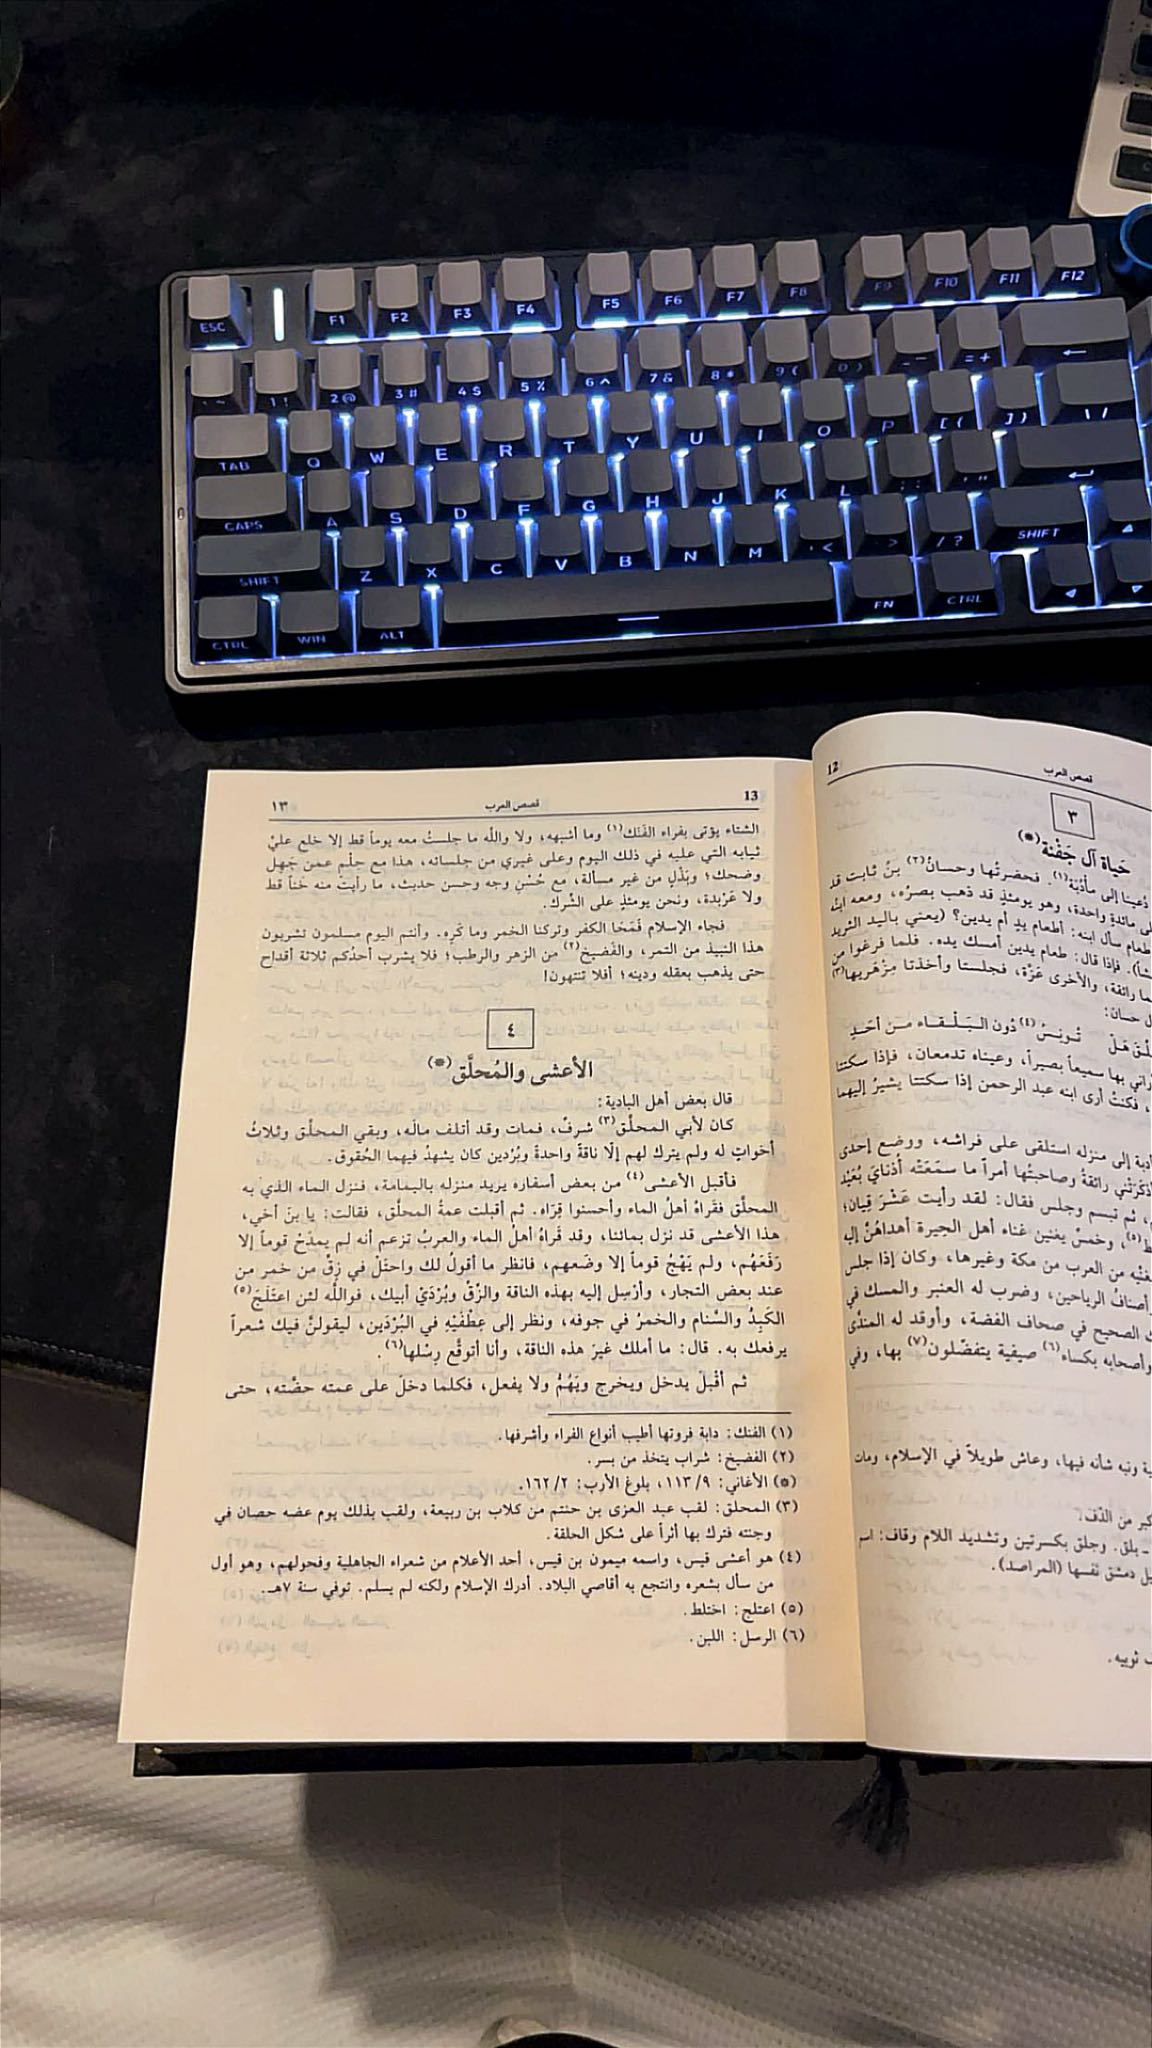 ESC F1 F2 F3 F4 F5 F6 F7 F8 F9 F10 F11 F12
` ~ 1 ! 2 @ 3 # 4 $ 5 % 6 ^ 7 & 8 * 9 ( 0 ) - _ = + ←
TAB Q W E R T Y U I O P [ { ] } \ |
CAPS A S D F G H J K L ; : ' "
SHIFT Z X C V B N M , < . > / ? SHIFT
CTRL WIN ALT FN CTRL
12 قصص العرب
٣
حياة آل جَفْنة(*)
دُعينا إلى مأدُبَة(١). فحضرتُها وحسانُ(٢) بنُ ثابت قد
مائدةٍ واحدة، وهو يومئذٍ قد ذهب بصرُه، ومعه ابنُه
طعام سأل ابنه: أطعام يدٍ أم يدين؟ (يعني باليد الثريد
فإذا قال: طعام يدين أمسك يده. فلما فرغوا من
رائقة، والأخرى عَزّة، فجلستا وأخذتا مِزْهَريها(٣)
حسان:
هَلْ تُونسُ(٤) دُون البَلْقاء مِن أحَدِ
أراني بها سميعاً بصيراً، وعيناه تدمعان، فإذا سكتتا
فكنتُ أرى ابنه عبد الرحمن إذا سكتتا يشيرُ إليهما
إلى منزله استلقى على فراشه، ووضع إحدى
رائقةُ وصاحبتُها أمراً ما سمَعَتْه أذنايَ بُعَيْد
ثم تبسم وجلس فقال: لقد رأيت عَشْرَ قِيان؛
وخمسٌ يغنين غناء أهل الحيرة أهداهُنَّ إليه
من العرب من مكة وغيرها، وكان إذا جلس
وأصنافُ الرياحين، وضرب له العنبر والمسك في
الصحيح في صحاف الفضة، وأوقد له المندَّى
وأصحابه بكساء(٦) صيفية يتفضّلون(٧) بها، وفي
ونبه شأنه فيها، وعاش طويلاً في الإسلام، ومات
من الدّف.
بلق. وجلق بكسرتين وتشديد اللام وقاف: اسم
دمشق نفسها (المراصد).
ثوبيه.
13 قصص العرب ١٣
الشتاء يؤتى بفراء الفَنَك(١) وما أشبهه، ولا واللَّه ما جلستُ معه يوماً قط إلا خلع عليّ
ثيابه التي عليه في ذلك اليوم وعلى غيري من جلسائه، هذا مع حِلْم عمن جَهِل
وضحك؛ وبَذْلٍ من غير مسألة، مع حُسْنِ وجه وحسن حديث، ما رأيت منه خَناً قط
ولا عَرْبدة، ونحن يومئذٍ على الشّرك.
فجاء الإسلام فَمَحَا الكفر وتركنا الخمر وما كَرِه. وأنتم اليوم مسلمون تشربون
هذا النبيذ من التمر، والفَضيخ(٢) من الزهر والرطب؛ فلا يشرب أحدُكم ثلاثة أقداح
حتى يذهب بعقله ودينه؛ أفلا تنتهون!
٤
الأعشى والمُحلَّق(*)
قال بعض أهل البادية:
كان لأبي المحلَّق(٣) شرفٌ، فمات وقد أتلف مالَه، وبقي المحلَّق وثلاثُ
أخواتٍ له ولم يترك لهم إلّا ناقةً واحدةً وبُرْدين كان يشهدُ فيهما الحُقوق.
فأقبل الأعشى(٤) من بعض أسفاره يريد منزله باليمامة، فنزل الماء الذي به
المحلَّق فقَراهُ أهلُ الماء وأحسنوا قِرَاه. ثم أقبلت عمةُ المحلَّق، فقالت: يا بنَ أخي،
هذا الأعشى قد نزل بمائنا، وقد قَراهُ أهلُ الماء والعربُ تزعم أنه لم يمدَحْ قوماً إلا
رَفَعَهُم، ولم يَهْجُ قوماً إلا وضَعهم، فانظر ما أقولُ لك واحتَلْ في زِقٍّ من خمر من
عند بعض التجار، وأرْسِل إليه بهذه الناقة والزِّقِّ وبُرْدَيْ أبيك، فواللَّه لئن اعتَلَجَ(٥)
الكَبِدُ والسَّنام والخمرُ في جوفه، ونظر إلى عِطْفَيْهِ في البُرْدَين، ليقولنَّ فيك شعراً
يرفعك به. قال: ما أملك غيرَ هذه الناقة، وأنا أتوقَّع رِسْلها(٦).
ثم أقْبلَ يدخل ويخرج ويَهُمُّ ولا يفعل، فكلما دخلَ على عمته حضَّته، حتى
(١) الفنك: دابة فروتها أطيب أنواع الفراء وأشرفها.
(٢) الفضيخ: شراب يتخذ من بسر.
(*) الأغاني: ١١٣/٩، بلوغ الأرب: ١٦٢/٢.
(٣) المحلق: لقب عبد العزى بن حنتم من كلاب بن ربيعة، ولقب بذلك يوم عضه حصان في
وجنته فترك بها أثراً على شكل الحلقة.
(٤) هو أعشى قيس، واسمه ميمون بن قيس، أحد الأعلام من شعراء الجاهلية وفحولهم، وهو أول
من سأل بشعره وانتجع به أقاصي البلاد. أدرك الإسلام ولكنه لم يسلم. توفي سنة ٧هـ.
(٥) اعتلج: اختلط.
(٦) الرسل: اللبن.